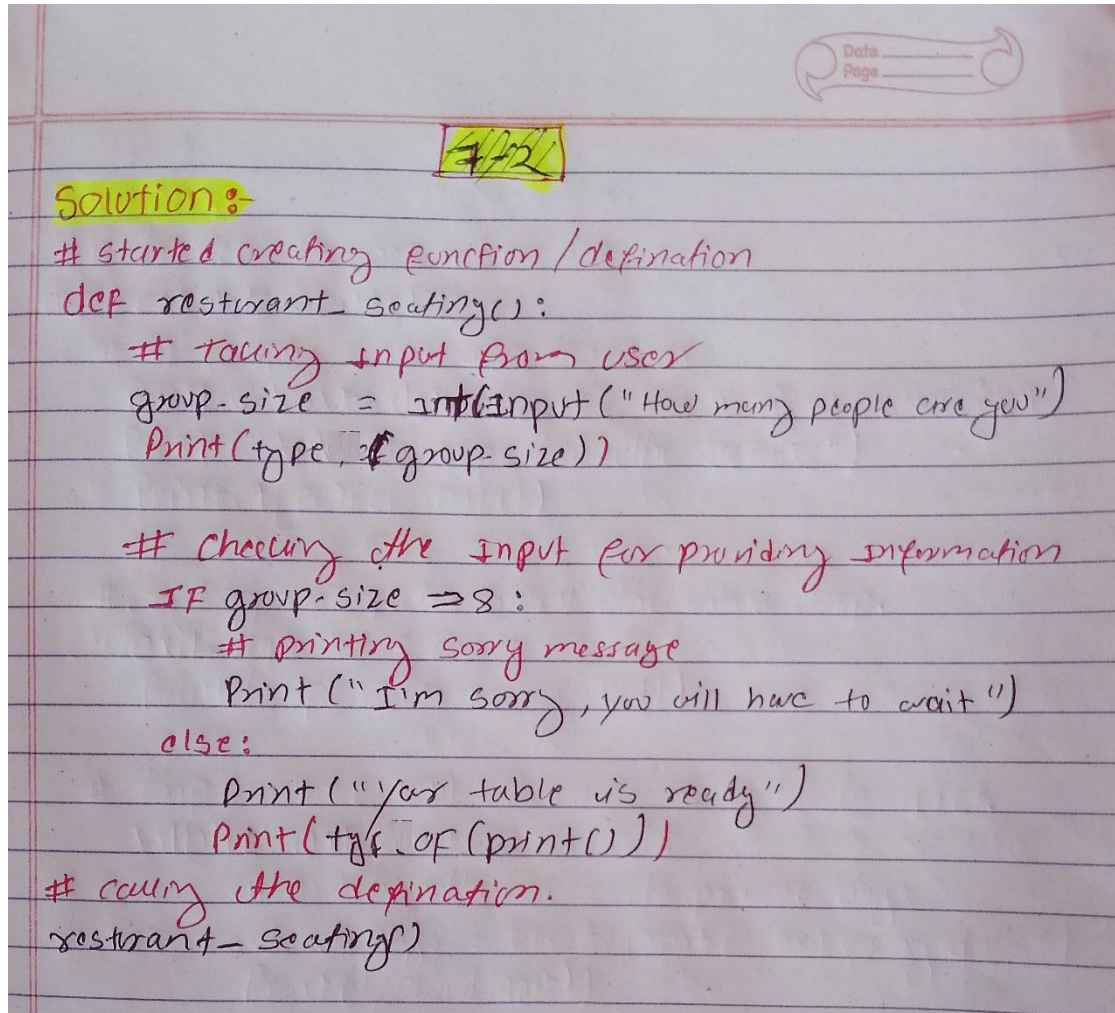 Date
Page
7-2
Solution :-
# started creating function / defination
def resturant_seating():
# Taking input from user
group-size = int(Input ("How many people are you")
Print (type, (group-size))
# Checking the Input for providing Information
IF group-size => 8 :
# printing sorry message
Print ("I'm sorry, you will have to wait")
else:
Print ("Your table is ready")
Print ( OF (print()))
# calling the defination.
resturant_seating()